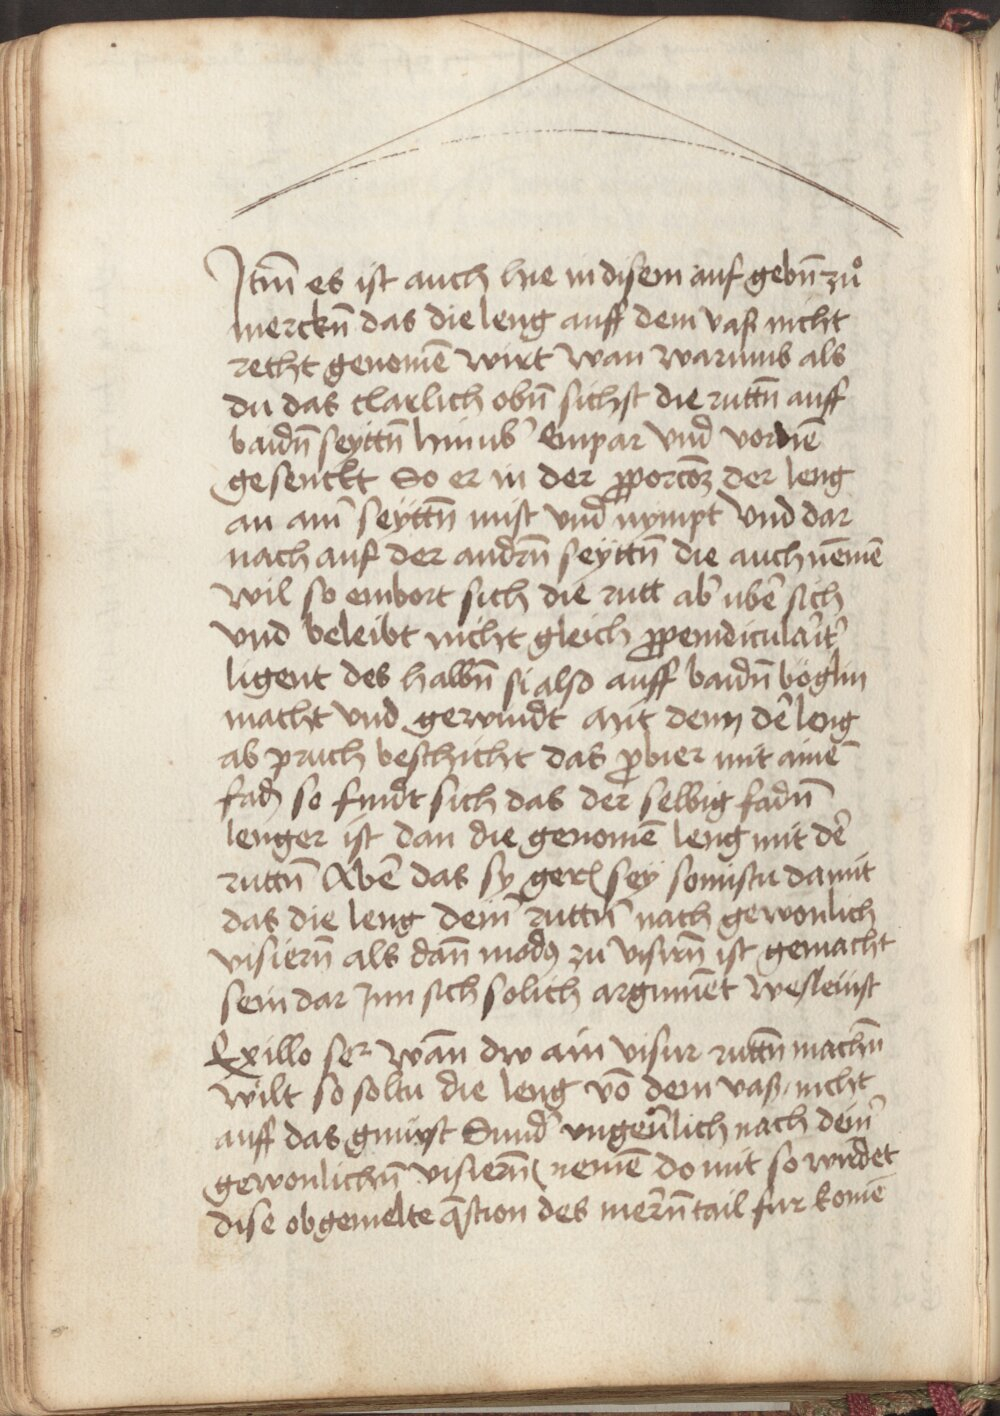 Itm̄ es ist auch hie in disem auf gebn̄ zů
merckn̄ das die leng auff dem vaß nicht
recht genomē wirt wan warumb als
du das clarlich obn̄ sichst die ruttn̄ auff
baidn̄ seyttn̄ hinub' Enpar vnd vornē
gesenckt So er in der ꝓporcōz der leng
an aim̄ seyttn̄ mist vnd nympt Vnd dar
nach auf der andrn̄ seyttn̄ die auch nēmē
wil so embort sich die rutt ab' vbē sich
vnd beleibt nicht gleich ꝑpendicularit'
ligent des halbn̄ si also auff baidn̄ böglin
macht vnd gewindt mit dem dē leng
ab pruch beschicht das ꝓbier mit ainē
fadn̄ so findt sich das der selbig fadn̄
lenger ist dan die genomē leng mit dē
ruttn̄ Abē das sy gerecht sey so mistu damit
das die leng dein' ruttn̄ nach gewonlich
visiern̄ als dan̄ modꝯ zu visirn̄ ist gemacht
sein dar Inn sich solich argumēt
Ex illo wān dw ain visur ruttn̄ machn̄
wilt so soltu die leng vō dem vaß nicht
auff das gnuist Sund' vngeu̇lich nach dein'
gewonlichn̄ visiern̄ nemē do mit so wirdet
dise obgemelte q̄stion des mern̄tail fur komē